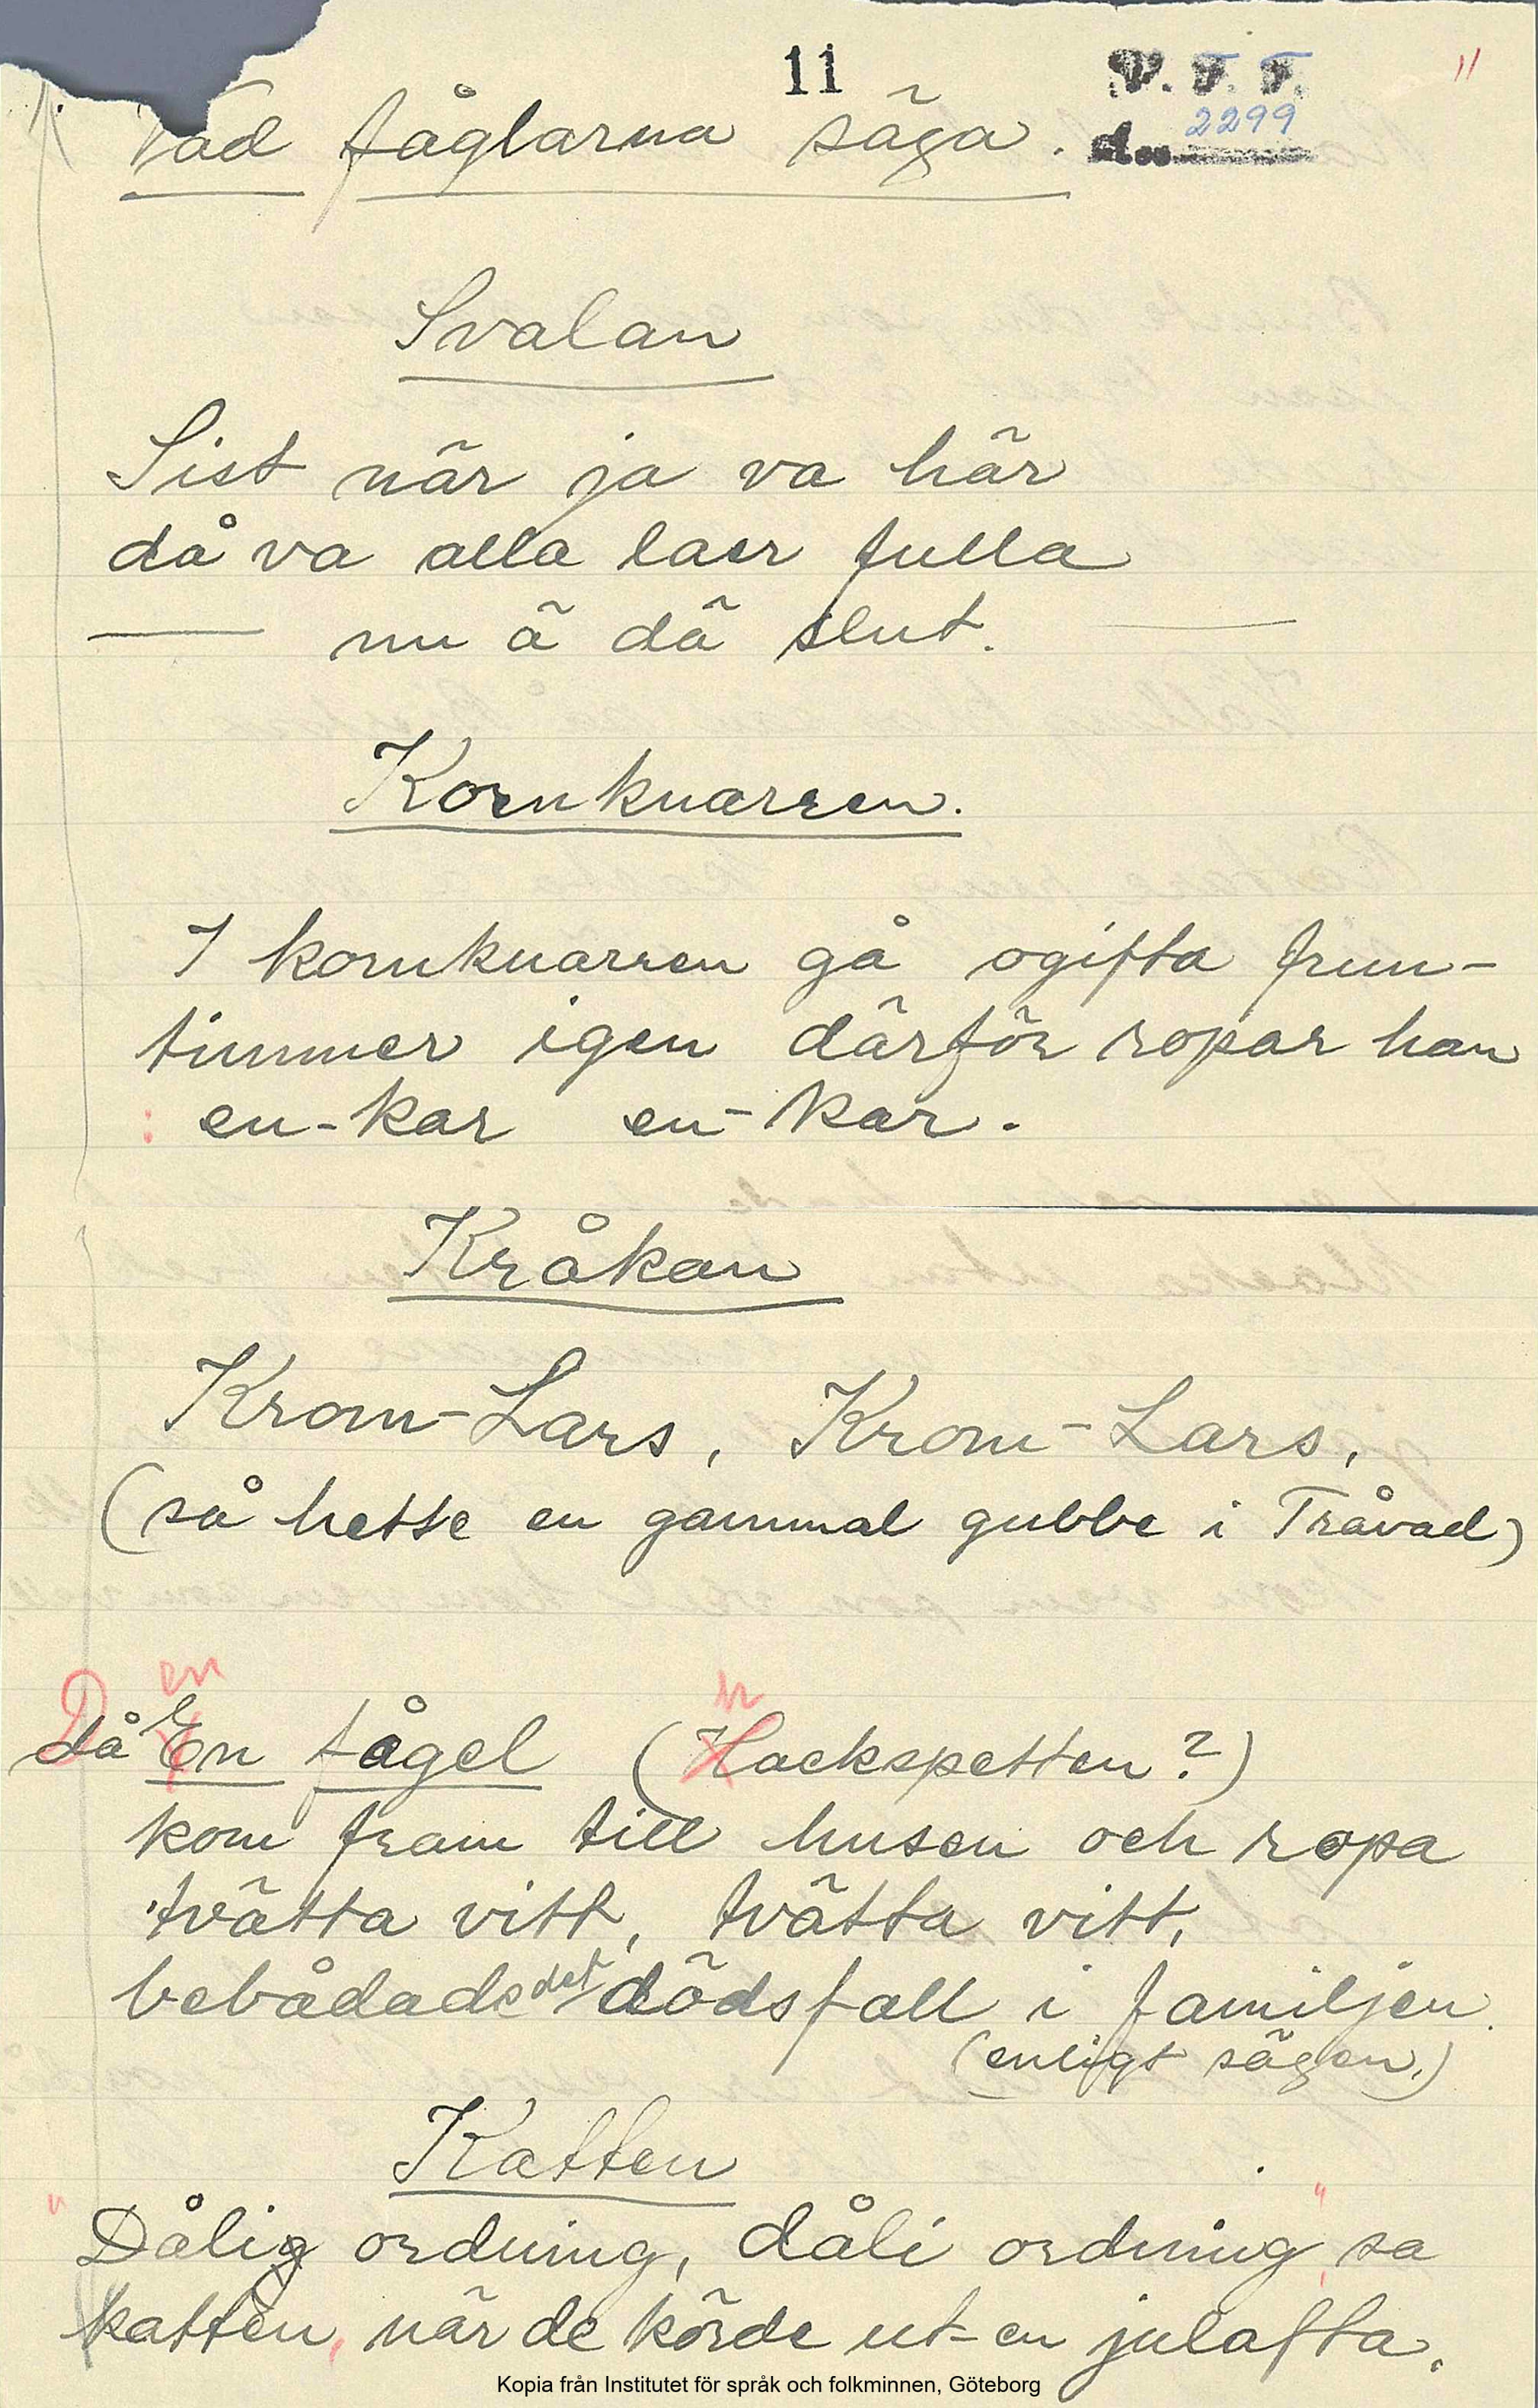 11
V. F. F.
11
Vad fåglarna säga.
d... 2299
Svalan
Sist när ja va här
då va alla laer fulla
nu ä dä slut.
Kornknarren.
I kornknarren gå ogifta frun-
timmer igen därför ropar han
: en-kar en-kar.
Kråkan
Krom-Lars, Krom-Lars,
(så hette en gammal gubbe i Tråvad)
en h
då En fågel (Hackspetten?)
kom fram till husen och ropa
tvätta vitt, tvätta vitt,
bebådade det dödsfall i familjen.
(enligt sägen.)
Katten
"Dålig ordning, dåli ordning", sa
katten, när de körde ut en julafta.
Kopia från Institutet för språk och folkminnen, Göteborg